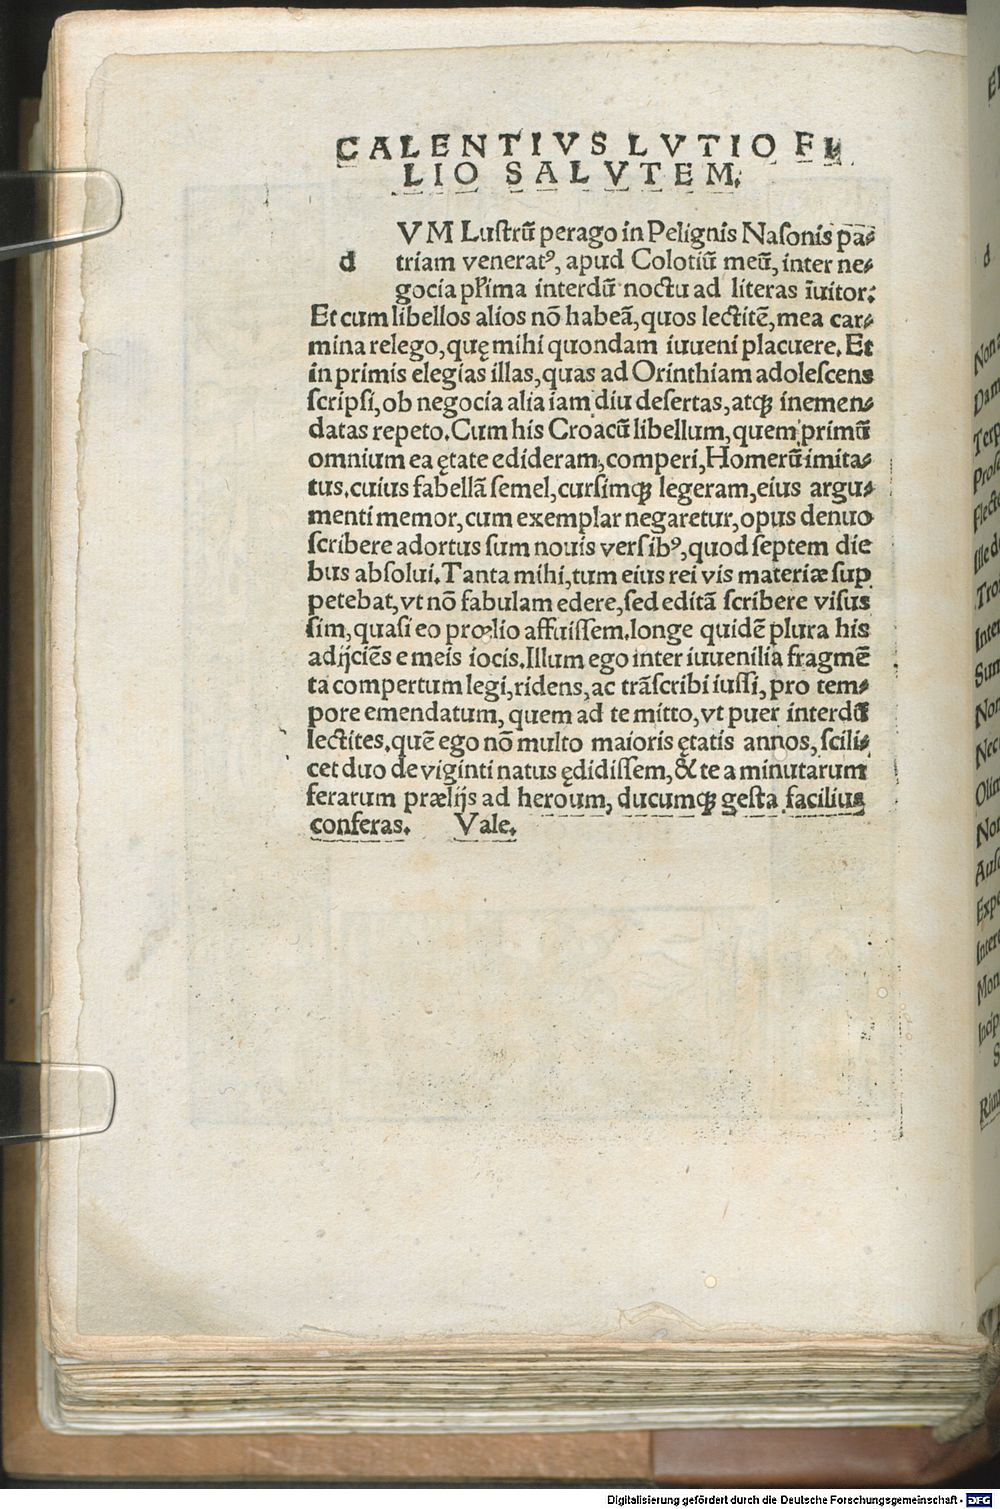 CALENTIVS LVTIO FI
LIO SALVTEM.
d
VM Luſtrũ perago in Pelignis Naſonis pa⸗
triam veneratꝰ, apud Colotiũ meũ, inter ne⸗
gocia pl'ima interdũ noctu ad literas ĩuitor:
Et cum libellos alios nõ habeã, quos lectitẽ, mea car⸗
mina relego, quę mihi quondam iuueni placuere. Et
in primis elegias illas, quas ad Orinthiam adoleſcens
ſcripſi, ob negocia alia iam diu deſertas, atqꝫ inemen⸗
datas repeto. Cum his Croacũ libellum, quem primũ
omnium ea ętate edideram, comperi, Homerũ imita⸗
tus. cuius fabellã ſemel, curſimqꝫ legeram, eius argu⸗
menti memor, cum exemplar negaretur, opus denuo
ſcribere adortus ſum nouis verſibꝰ, quod ſeptem die
bus abſolui. Tanta mihi, tum eius rei vis materiæ ſup
petebat, vt nõ fabulam edere, ſed editã ſcribere viſus
ſim, quaſi eo prœlio affuiſſem. longe quidẽ plura his
adijciẽs e meis iocis. Illum ego inter iuuenilia fragmẽ
ta compertum legi, ridens, ac trãſcribi iuſſi, pro tem⸗
pore emendatum, quem ad te mitto, vt puer interdũ
lectites. quẽ ego nõ multo maioris ętatis annos, ſcili⸗
cet duo de viginti natus ędidiſſem, & te a minutarum
ferarum prælijs ad heroum, ducumqꝫ geſta facilius
conferas. Vale.
d
Digitalisierung gefördert durch die Deutsche Forschungsgemeinschaft - DFG